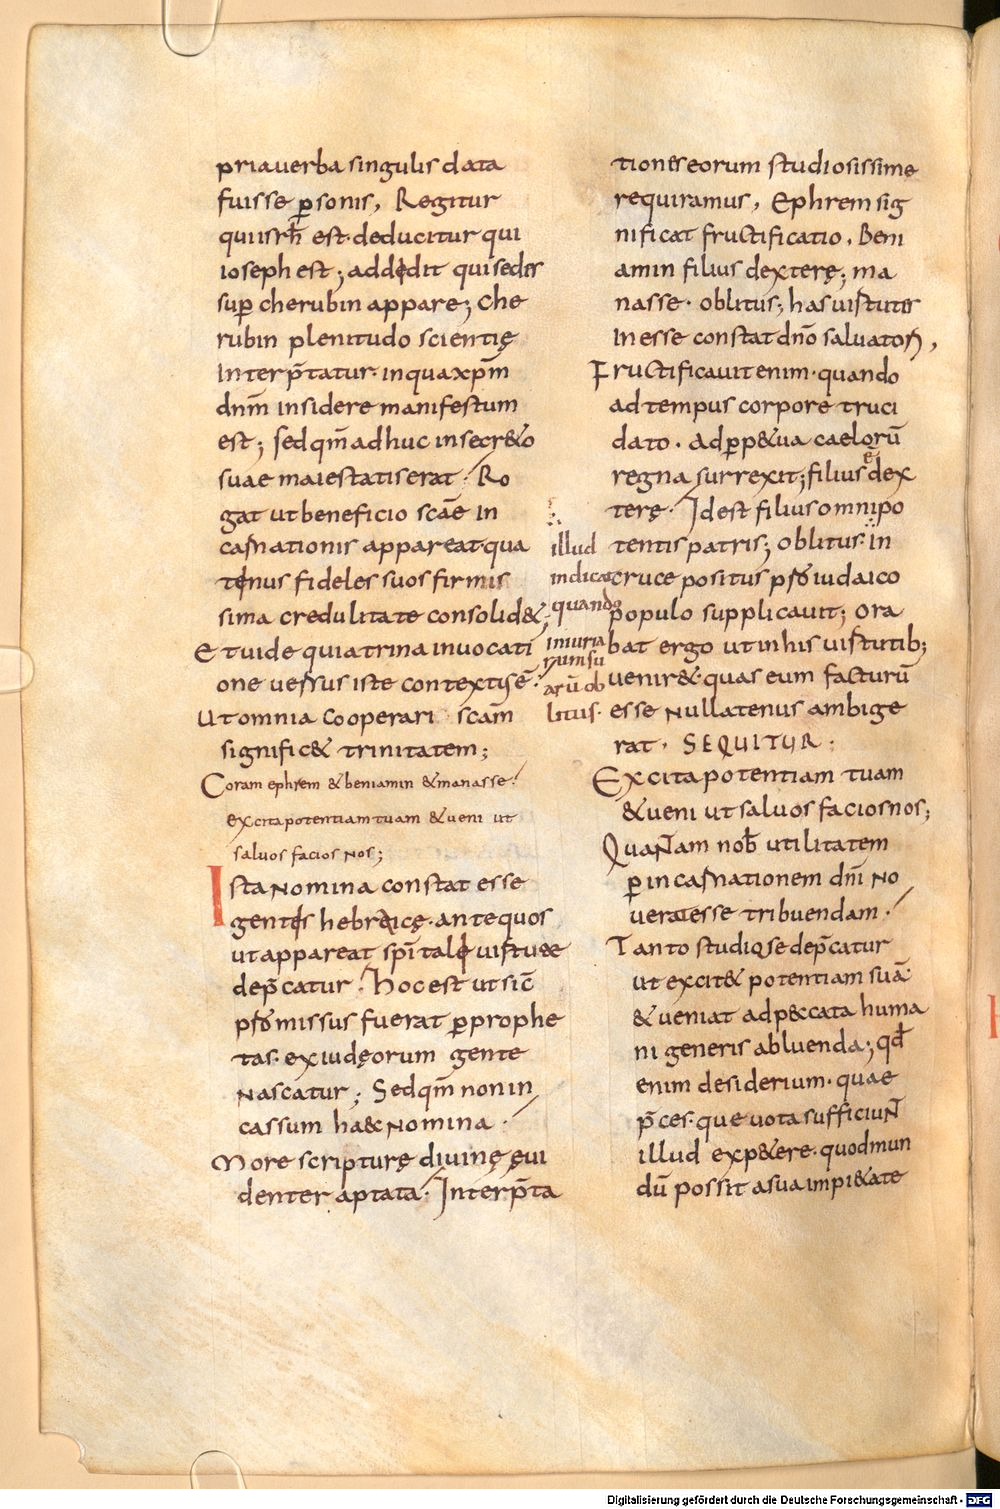 pria uerba singulis data
fuisse ꝑsonis, Regitur
qui isrh̄ est· deducitur qui
ioseph est; addidit qui sedes
suꝑ cherubin appare; Che
rubin plenitudo scientię
Interp̄tatur· in qua xp̄m
dnm̄ insidere manifestum
est; sed qm̄ adhuc in secr&o
suae maiestatis erat· Ro
gat ut beneficio scāe in
carnationis appareat qua
tenus fideles suos firmis
sima credulitate consolid&;
Et uide quia trina inuocati
one uersus iste contextus ē·
Ut omnia cooperari scām
signific& trinitatem;
Coram ephrem & beniamin & manasse·
excita potentiam tuam & ueni ut
saluos facios nos;
Ista nomina constat esse
gentis hebreicę· ante quos
ut appareat sp̄itali uirtute
dep̄catur· Hoc est ut sic̄
ꝓmissus fuerat ꝑ prophe
tas· ex iudęorum gente
nascatur; Sed qm̄ non in
cassum haec nomina·
More scripturę diuinę eui
denter aptata· Interp̄ta
tiones eorum studiosissime
requiramus, Ephrem sig
nificat fructificatio, Beni
amin filius dexterę; ma
nasse· oblitus; has uirtutes
Inesse constat dnō saluatoꝝ,
Fructificauit enim· quando
ad tempus corpore truci
dato· ad ꝑp&ua caelorū
regna surrexit; filius dex
terę· Id est filius omnipo
tentis patris; oblitus· in
cruce positus ꝓ iudaico
populo supplicauit; ora
bat ergo ut in his uirtutib;
uenir&· quas eum facturū
esse nullatenus ambige
rat· SEQUITUR·
Excita potentiam tuam
& ueni ut saluos facios nos;
Quantam nob̄ utilitatem
ꝑ incarnationem dnī no
uerat esse tribuendam·
Tanto studiose dep̄catur
ut excit& potentiam suā·
& ueniat ad peccata huma
ni generis abluenda; qd̄
enim desiderium· quae
p̄ces· que uota sufficiunt
illud exp&ere· quod mun
dū possit a sua impi&ate
illud
indicat
quando
iniuria
rum su
arū ob
litus·